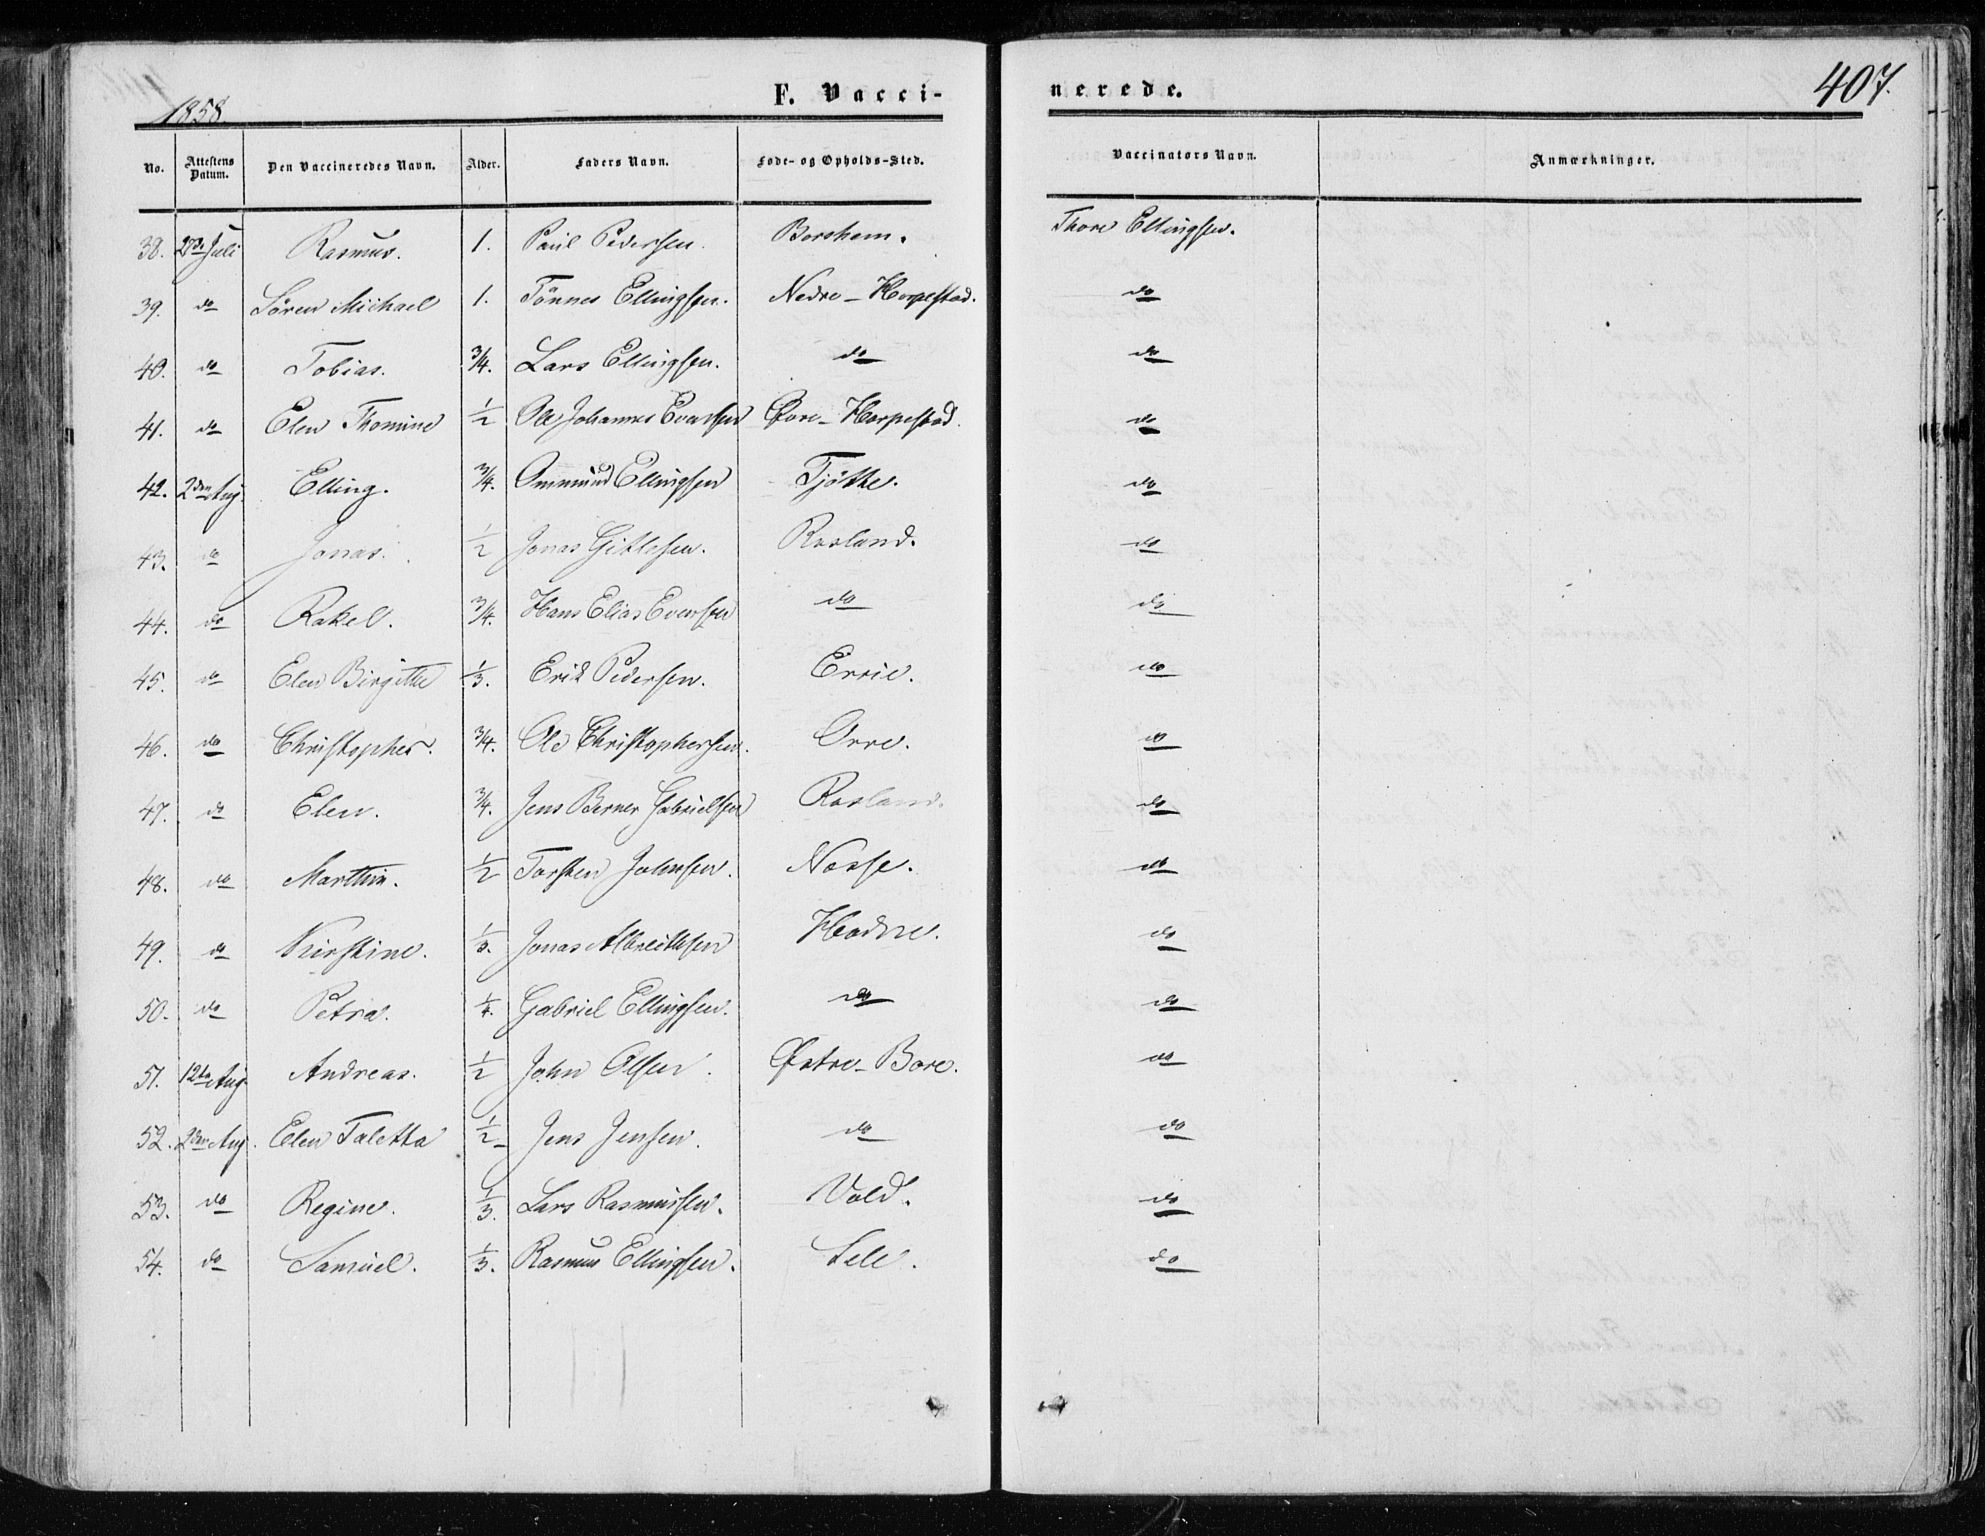 1858.
F. Vacci-
nerede.
407.
No. Attestens Datum. Den Vaccineredes Navn. Alder. Faders Navn. Føde- og Opholds-Sted. Vaccinators Navn. Anmærkninger.
38. Juli Rasmus. 1. Paul Pedersen. Boreham. Thore Ellingsen.
39. do Sören Michael 1. Tönnes Ellingsen. Nedre-Horpestad. do
40. do Tobias. 3/4. Lars Ellingsen. do do
41. do Elen Thomine 1/2 Ole Johannes Evertsen Øvre-Horpestad. do
42. 2den Aug. Elling. 3/4. Ommund Ellingsen Tjötke. do
43. do Jonas. 1/2 Jonas Gitlesen. Rosland. do
44. do Rakel. 3/4. Hans Elias Evensen do do
45. do Elen Birgitte 1/3. Erik Pedersen. Errie. do
46. do Christopher. 3/4. Ole Christophersen. Orre. do
47. do Elen. 3/4. Jens Berner Gabrielsen Rosland. do
48. do Marthin. 1/2 Torsten Johnsen. Nosse. do
49. do Kirstine. Jonas Albreithsen Hodne. do
50. do Petra. 1/4. Gabriel Ellingsen. do do
51. 12te Aug. Andreas. 1/2 John Olsen. Østre-Bore. do
52. 2den Aug. Elen Taletta 1/2 Jens Jensen. do do
53. do Regine. 1/3. Lars Rasmussen. Vold. do
54. do Samuel. 1/3. Rasmus Ellingsen. Lele. do